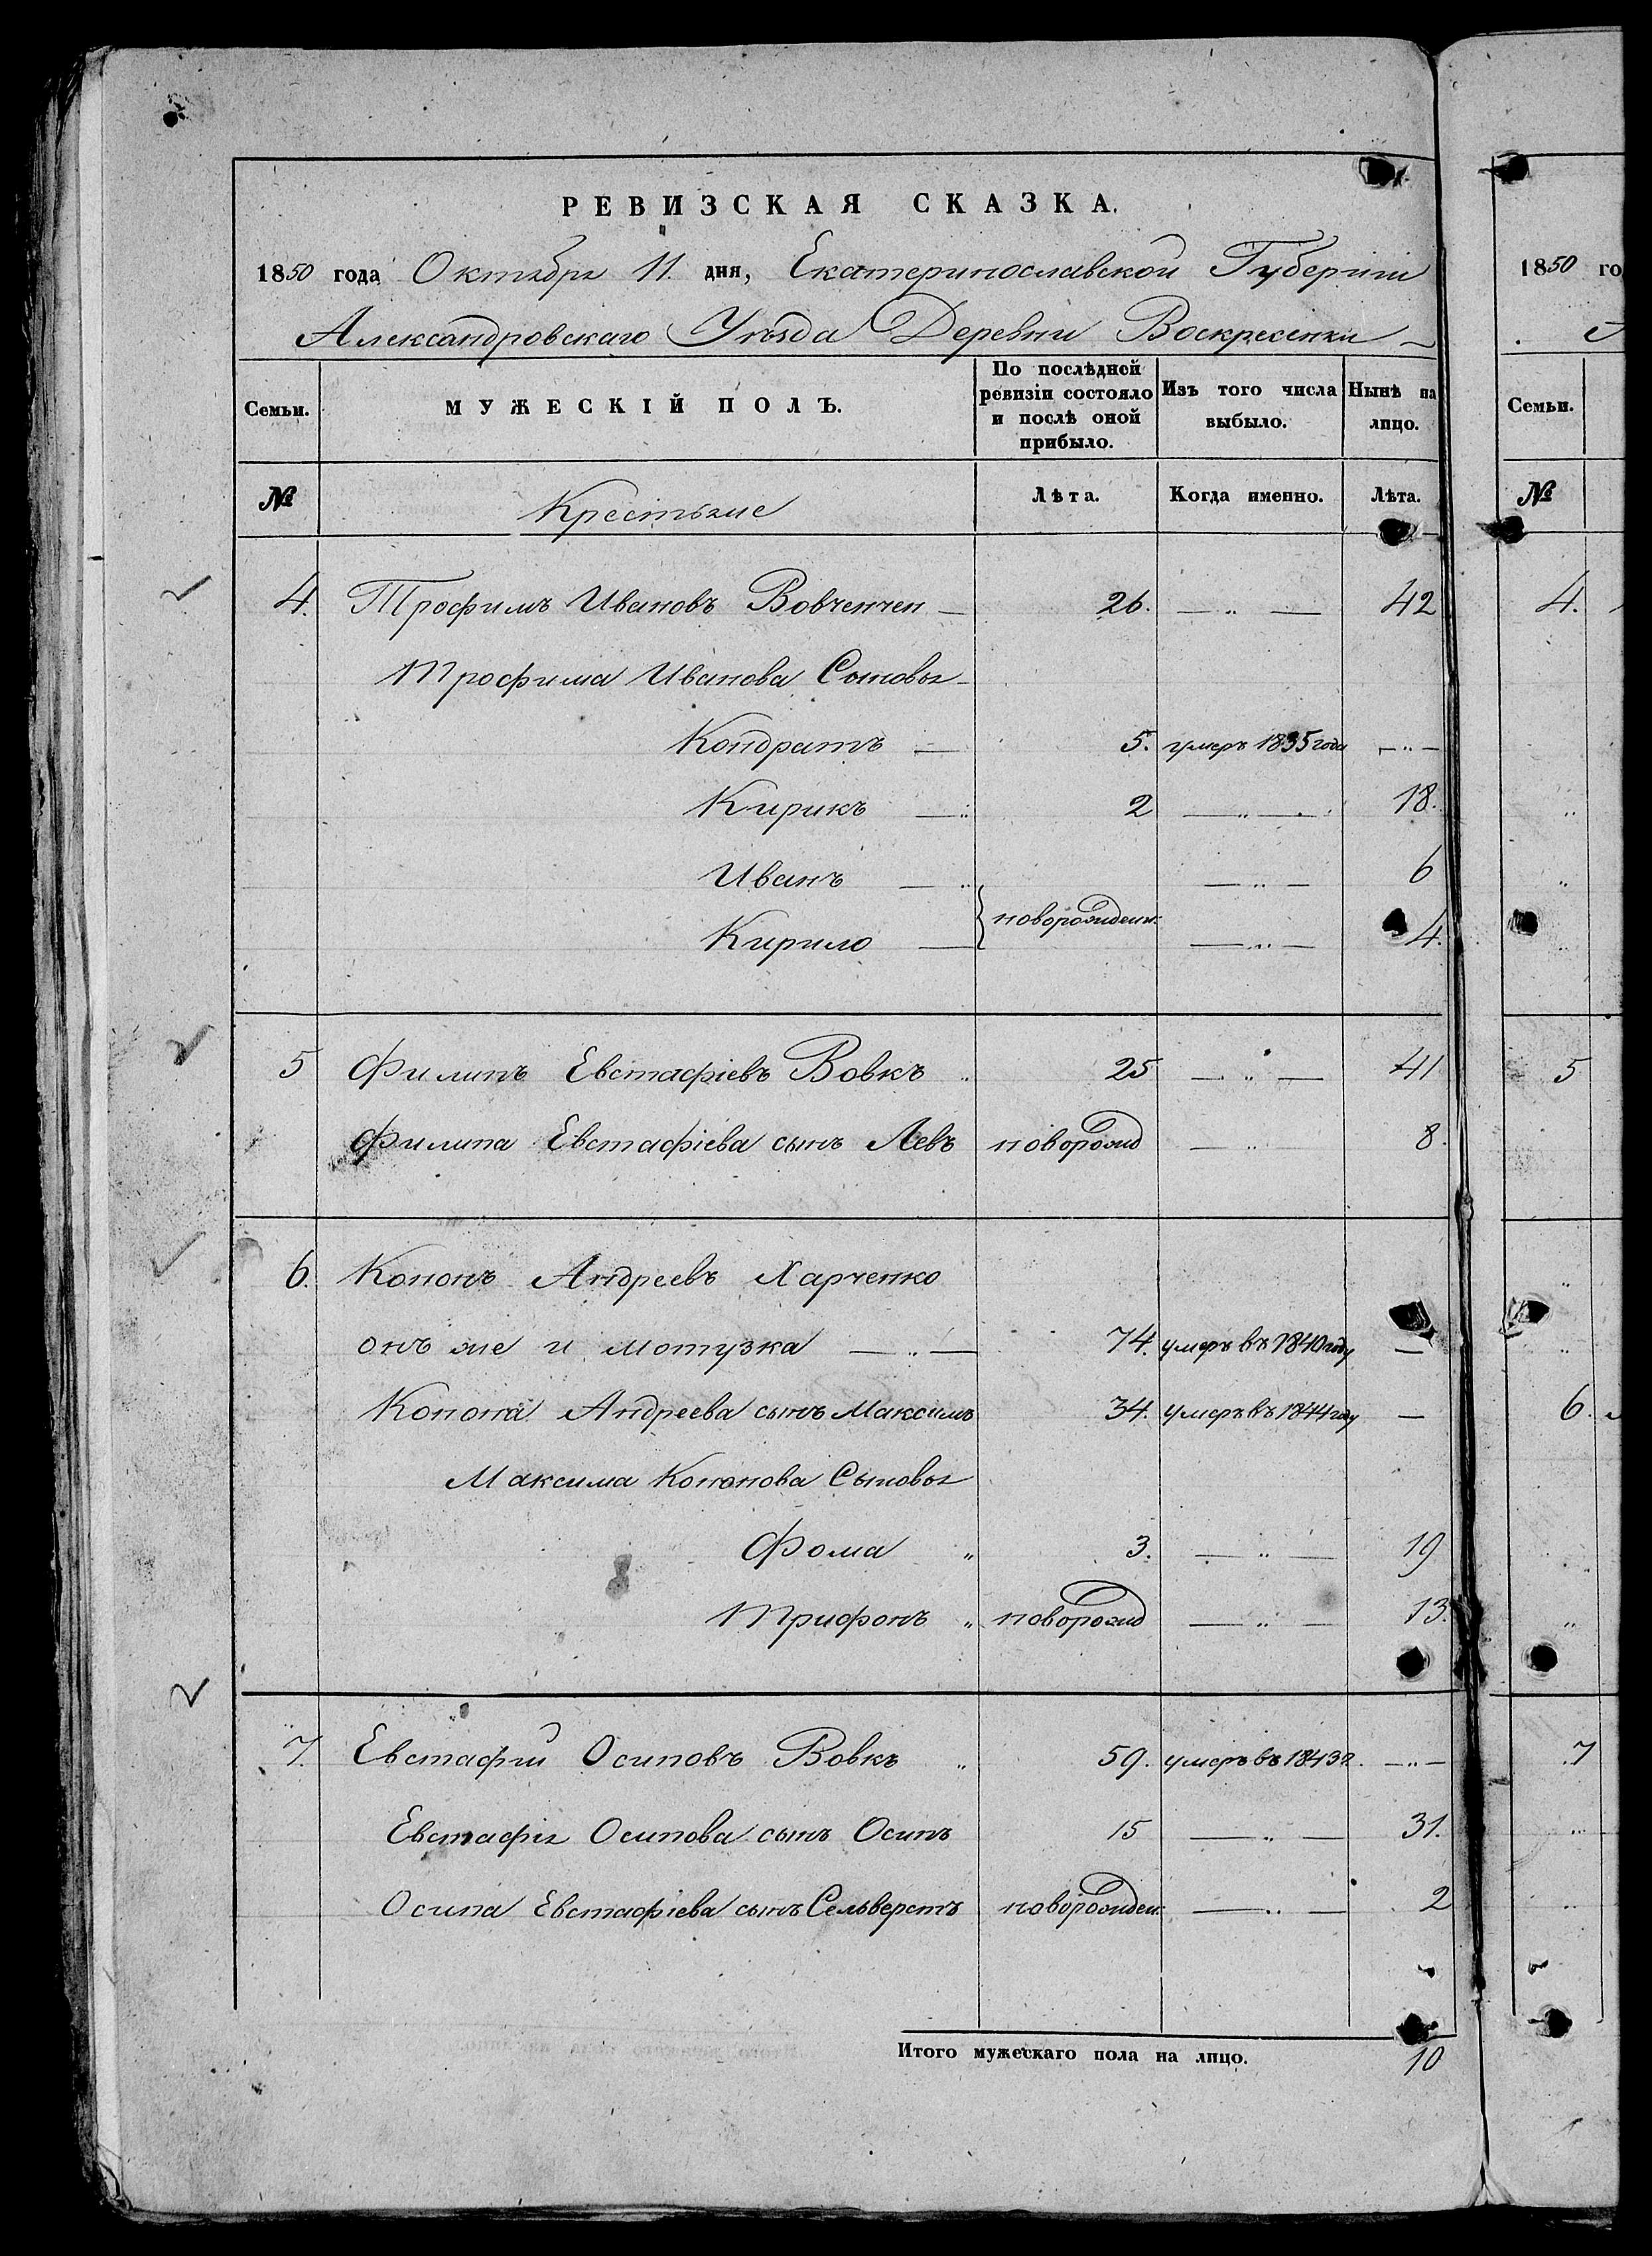 РЕВИЗСКАЯ СКАЗКА.
1850 года Октября 11. дня, Екатеринославской Губерніи
Александровскаго Уѣзда Деревни Воскресенки
Семьи. МУЖЕСКІЙ ПОЛЪ. По послѣдней ревизіи состояло и послѣ оной прибыло. Изъ того числа выбыло. Нынѣ на лицо.
№ Крестьяне Лѣта. Когда именно. Лѣта.
4. Трофимъ Ивановъ Вовченчен 26. — „ — 42
Трофима Иванова Сыновья
Кондратъ — 5. умеръ 1835 года — „ —
Кирикъ — 2 — „ — 18.
Иванъ — — „ — 6
новорожденн:
Кирило — — „ — 4.
5 Филипъ Евстафіевъ Вовкъ 25 — „ — 41
Филипа Евстафіева сынъ Левъ новорожд — „ — 8.
6. Кононъ Андреевъ Харченко
онъ же и Мотузка — „ — 74. умеръ въ 1840 году —
Конона Андреева сынъ Максимъ 34. умеръ въ 1844 году —
Максима Кононова Сыновья
Фома „ 3. — „ — 19
Трифонъ „ новорожд — „ — 13.
7. Евстафій Осиповъ Вовкъ „ 59. умеръ въ 1843 г. — „ —
Евстафія Осипова сынъ Осипъ 15 — „ — 31.
Осипа Евстафіева сынъ Сельверстъ новорожден: — „ — 2
Итого мужескаго пола на лицо. 10
1850 го
Семьи.
№
4.
5
6.
7